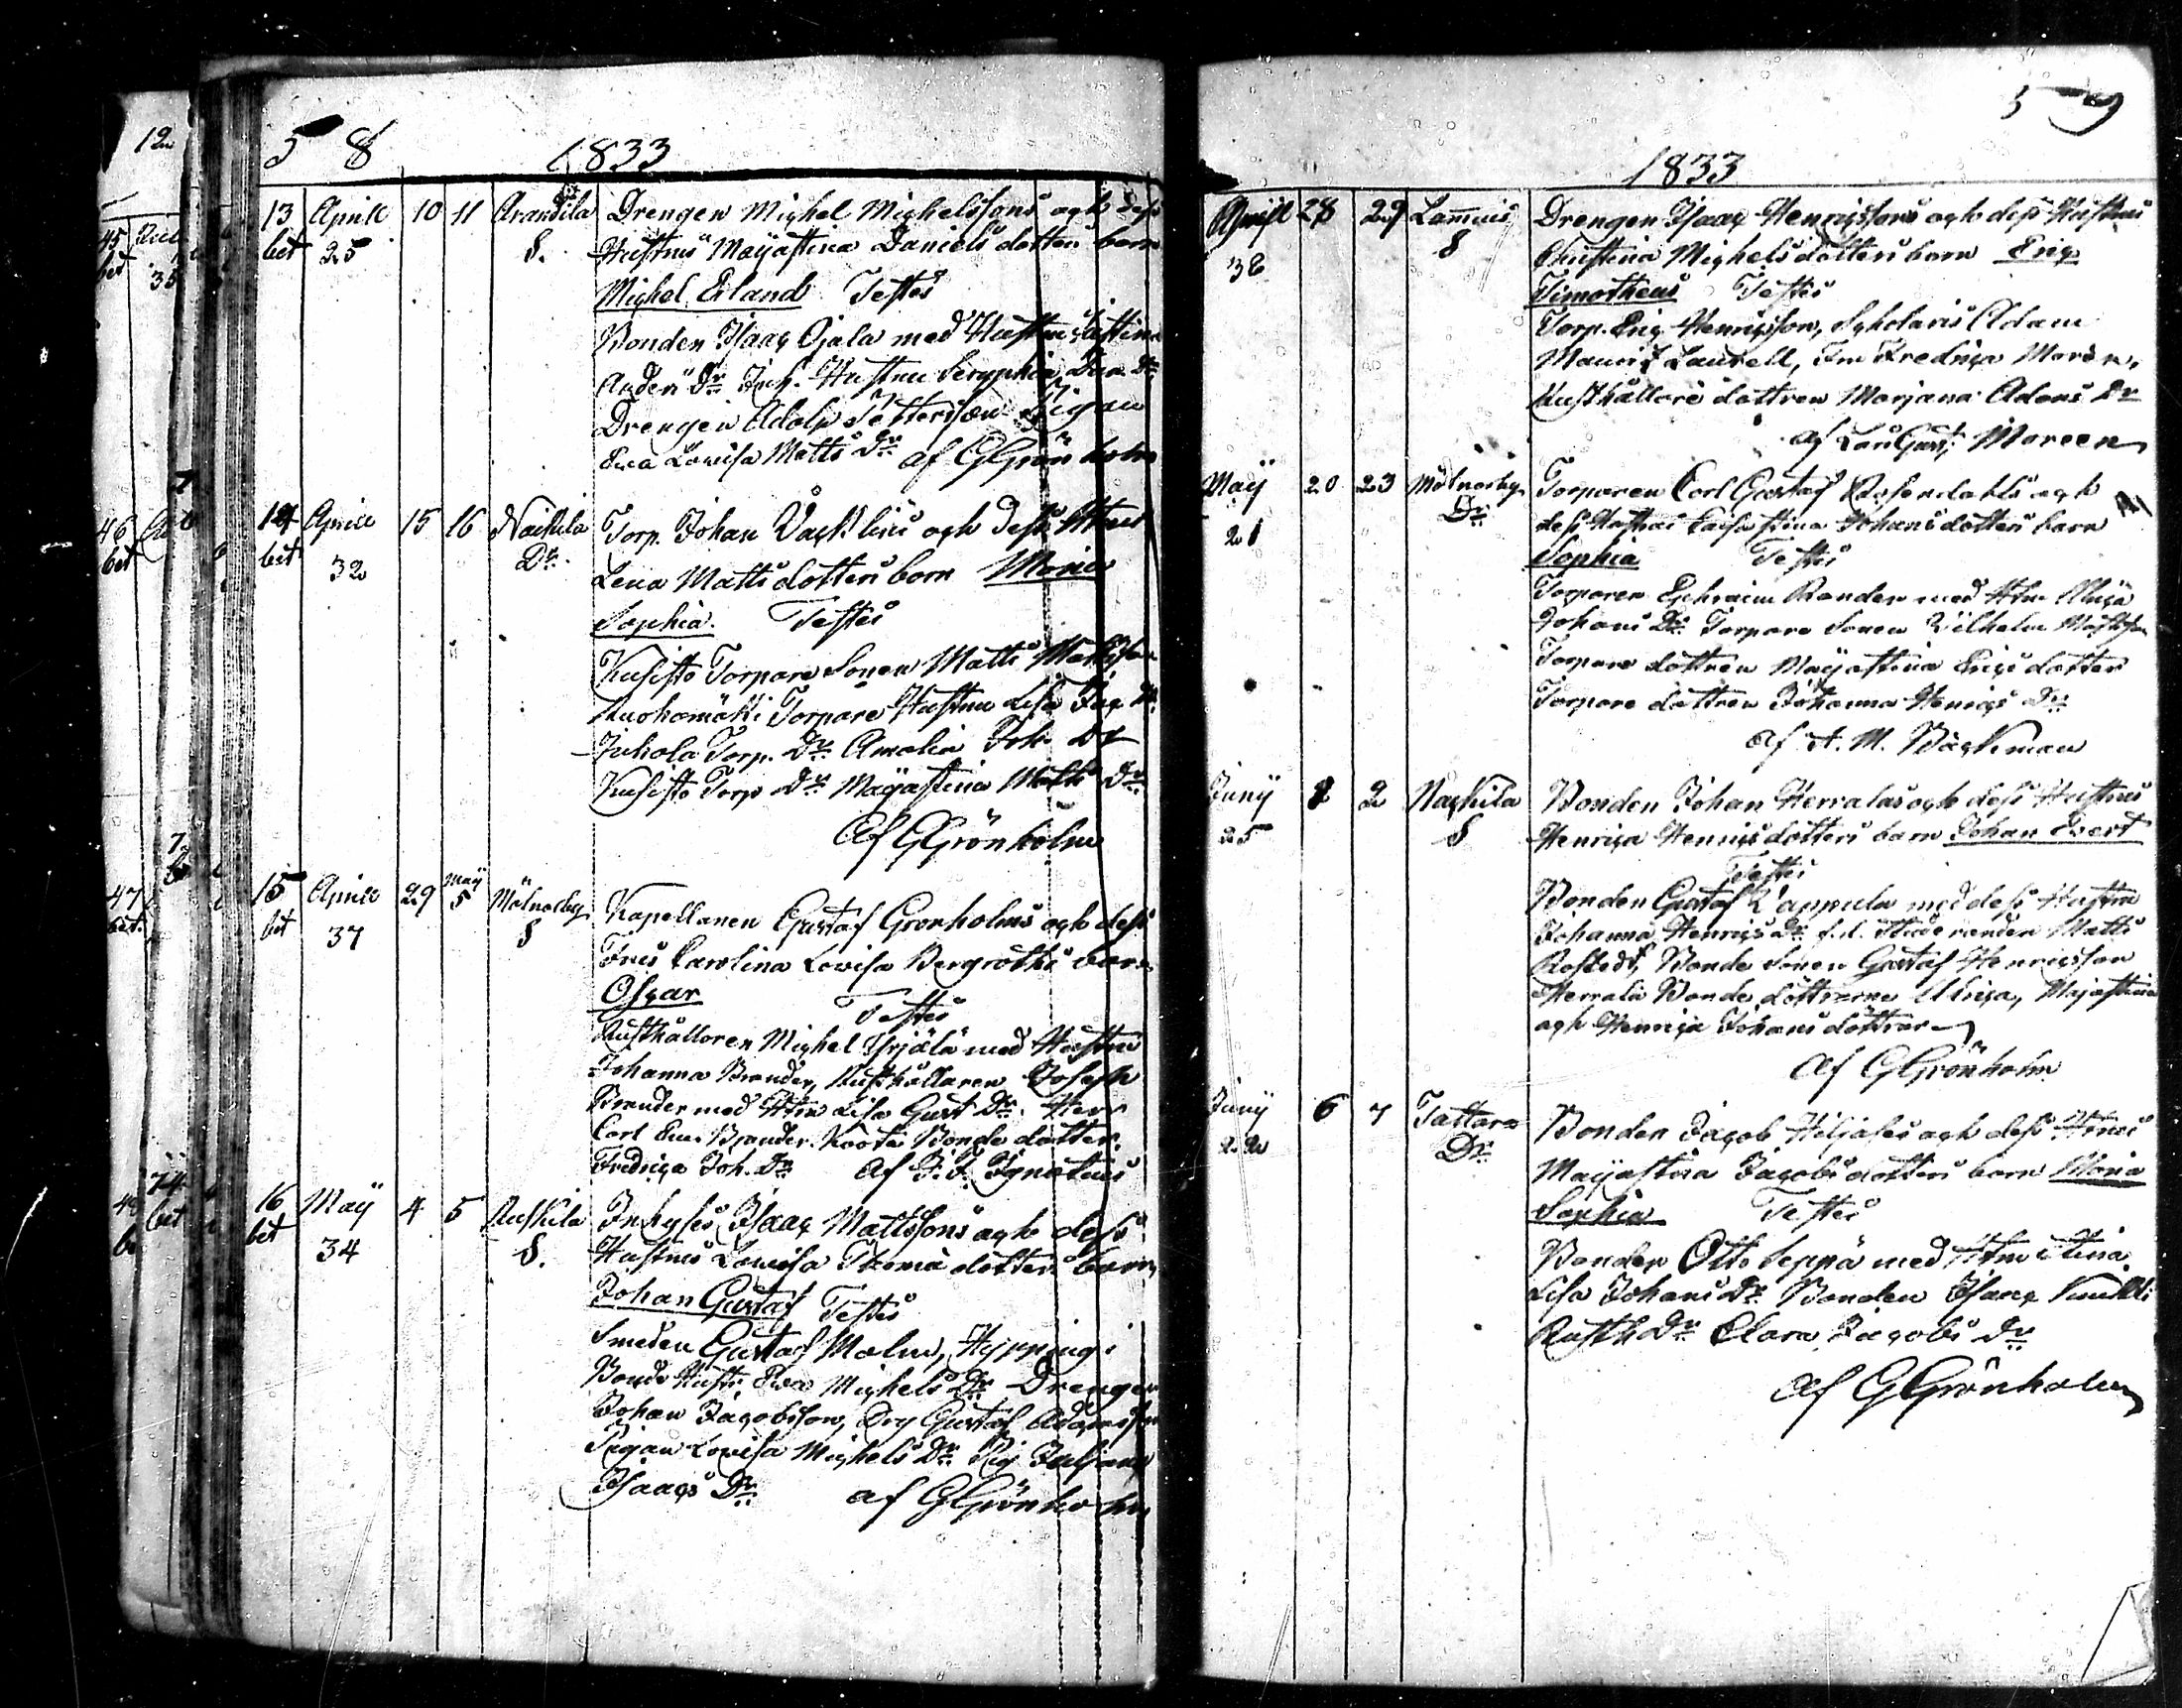 5 8
1833
13 Aprill 10 11 Arandila Drengen Mighel Mighelssons ogh dess
bet 25 S. Hustrus Majastina Daniels dotters barn
Mighel Erland Testes
Bonden Isaaq Ojala med Hustru Stina
Anders Dr Inh. Hustru Seraphia Dan. Dr
Drengen Adolp Pettersson Pigan
Ewa Lowisa Matts Dr af GGrönholm
14 Aprill 15 16 Nackila Torp. Johan Vacklins ogh dess Htrus
bet 32 Dr. Lena Matts dotters barn Maria
Sophia. Testes
Kuhisto Torpare Sonen Matts Mattsson
Ruohomäki Torpare Hustru Lisa Dr
Juhola Torp. Dr Amalia Joh. Dr
Kuhisto Torp Dr Majastina Matts Dr
Af GGrönholm
15 Aprill 29 Maÿ 5 Mölnorby Kapellanen Gustaf Grönholms ogh dess
bet 37 S Frus Karolina Lovisa Bergroths barn
Osqar Testes
Rusthållaren Mighel Yrjälä med Hustru
Johanna Brander, Rusthållaren Joseph
Brander med Htru Lisa Gust Dr. Herr
Carl Em. Brander. Koota Bonde dotter
Fredriqa Joh. Dr Af J. F. Ignatius
16 Maÿ 4 5 Ruskila Inhyses Isaaq Mattssons ogh dess
bet 34 S. Hustrus Lowisa Thomä dotters barn
Johan Gustaf Testes
Smeden Gustaf Malm, Hyppingi
Bonde Hustr. Ewa Mighels Dr Drengen
Johan Jaqobsson, Drg Gustaf Adamsson
Pigan Lovisa Mighels Dr Pig Juliana
Isaaqs Dr af GGrönholm
5 9
1833
Aprill 28 29 Lammais Drengen Isaaq Henriqssons ogh dess Hustrus
38 S Christina Mighels dotters barn Eriq
Timotheus Testes
Torp. Eriq Henriqsson, Sqholaris Adam
Mauritz Laurell, Fru Fredriqa Moreen,
Rusthållare dottren Marjana Adams Dr
af Lars Gust. Moreen
Maÿ 20 23 Mölnorby Torparen Carl Gustaf Rosendahls ogh
21 Dr. dess Hustrus Caisastina Johans dotters barn
Sophia Testes
Torparen Ephraim Rander med Htru Ulriqa
Johans Dr. Torpare Sonen Wilhelm Mattsson
Torpare dottren Majastina Eriqs dotter
Torpare dottren Johanna Henriqs Dr
af A. M. Bäckman
Junÿ 1 2 Naqkila Bonden Johan Herralas ogh dess Hustrus
25 S Henriqa Henriqs dotters barn Johan Evert
Testes
Bonden Gustaf Kappula med dess Hustru
Johanna Henriqs Dr f.d. Studeranden Matts
Rostedt, Bonde Sonen Gustaf Henriqsson
Herrala Bonde döttrarne Ulriqa, Majastina
ogh Henriqa Johans döttrar
Af GGrönholm
Junÿ 6 7 Tattara Bonden Jaqob Hiljases ogh dess Htrus
22 Dr. Majastina Jaqobs dotters barn Maria
Sophia Testes
Bonden Otto Seppä med Htru Stina
Lisa Johans Dr. Bonden Isaaq
Rusth Dr Clara Jaqobs Dr
Af GGrönholm